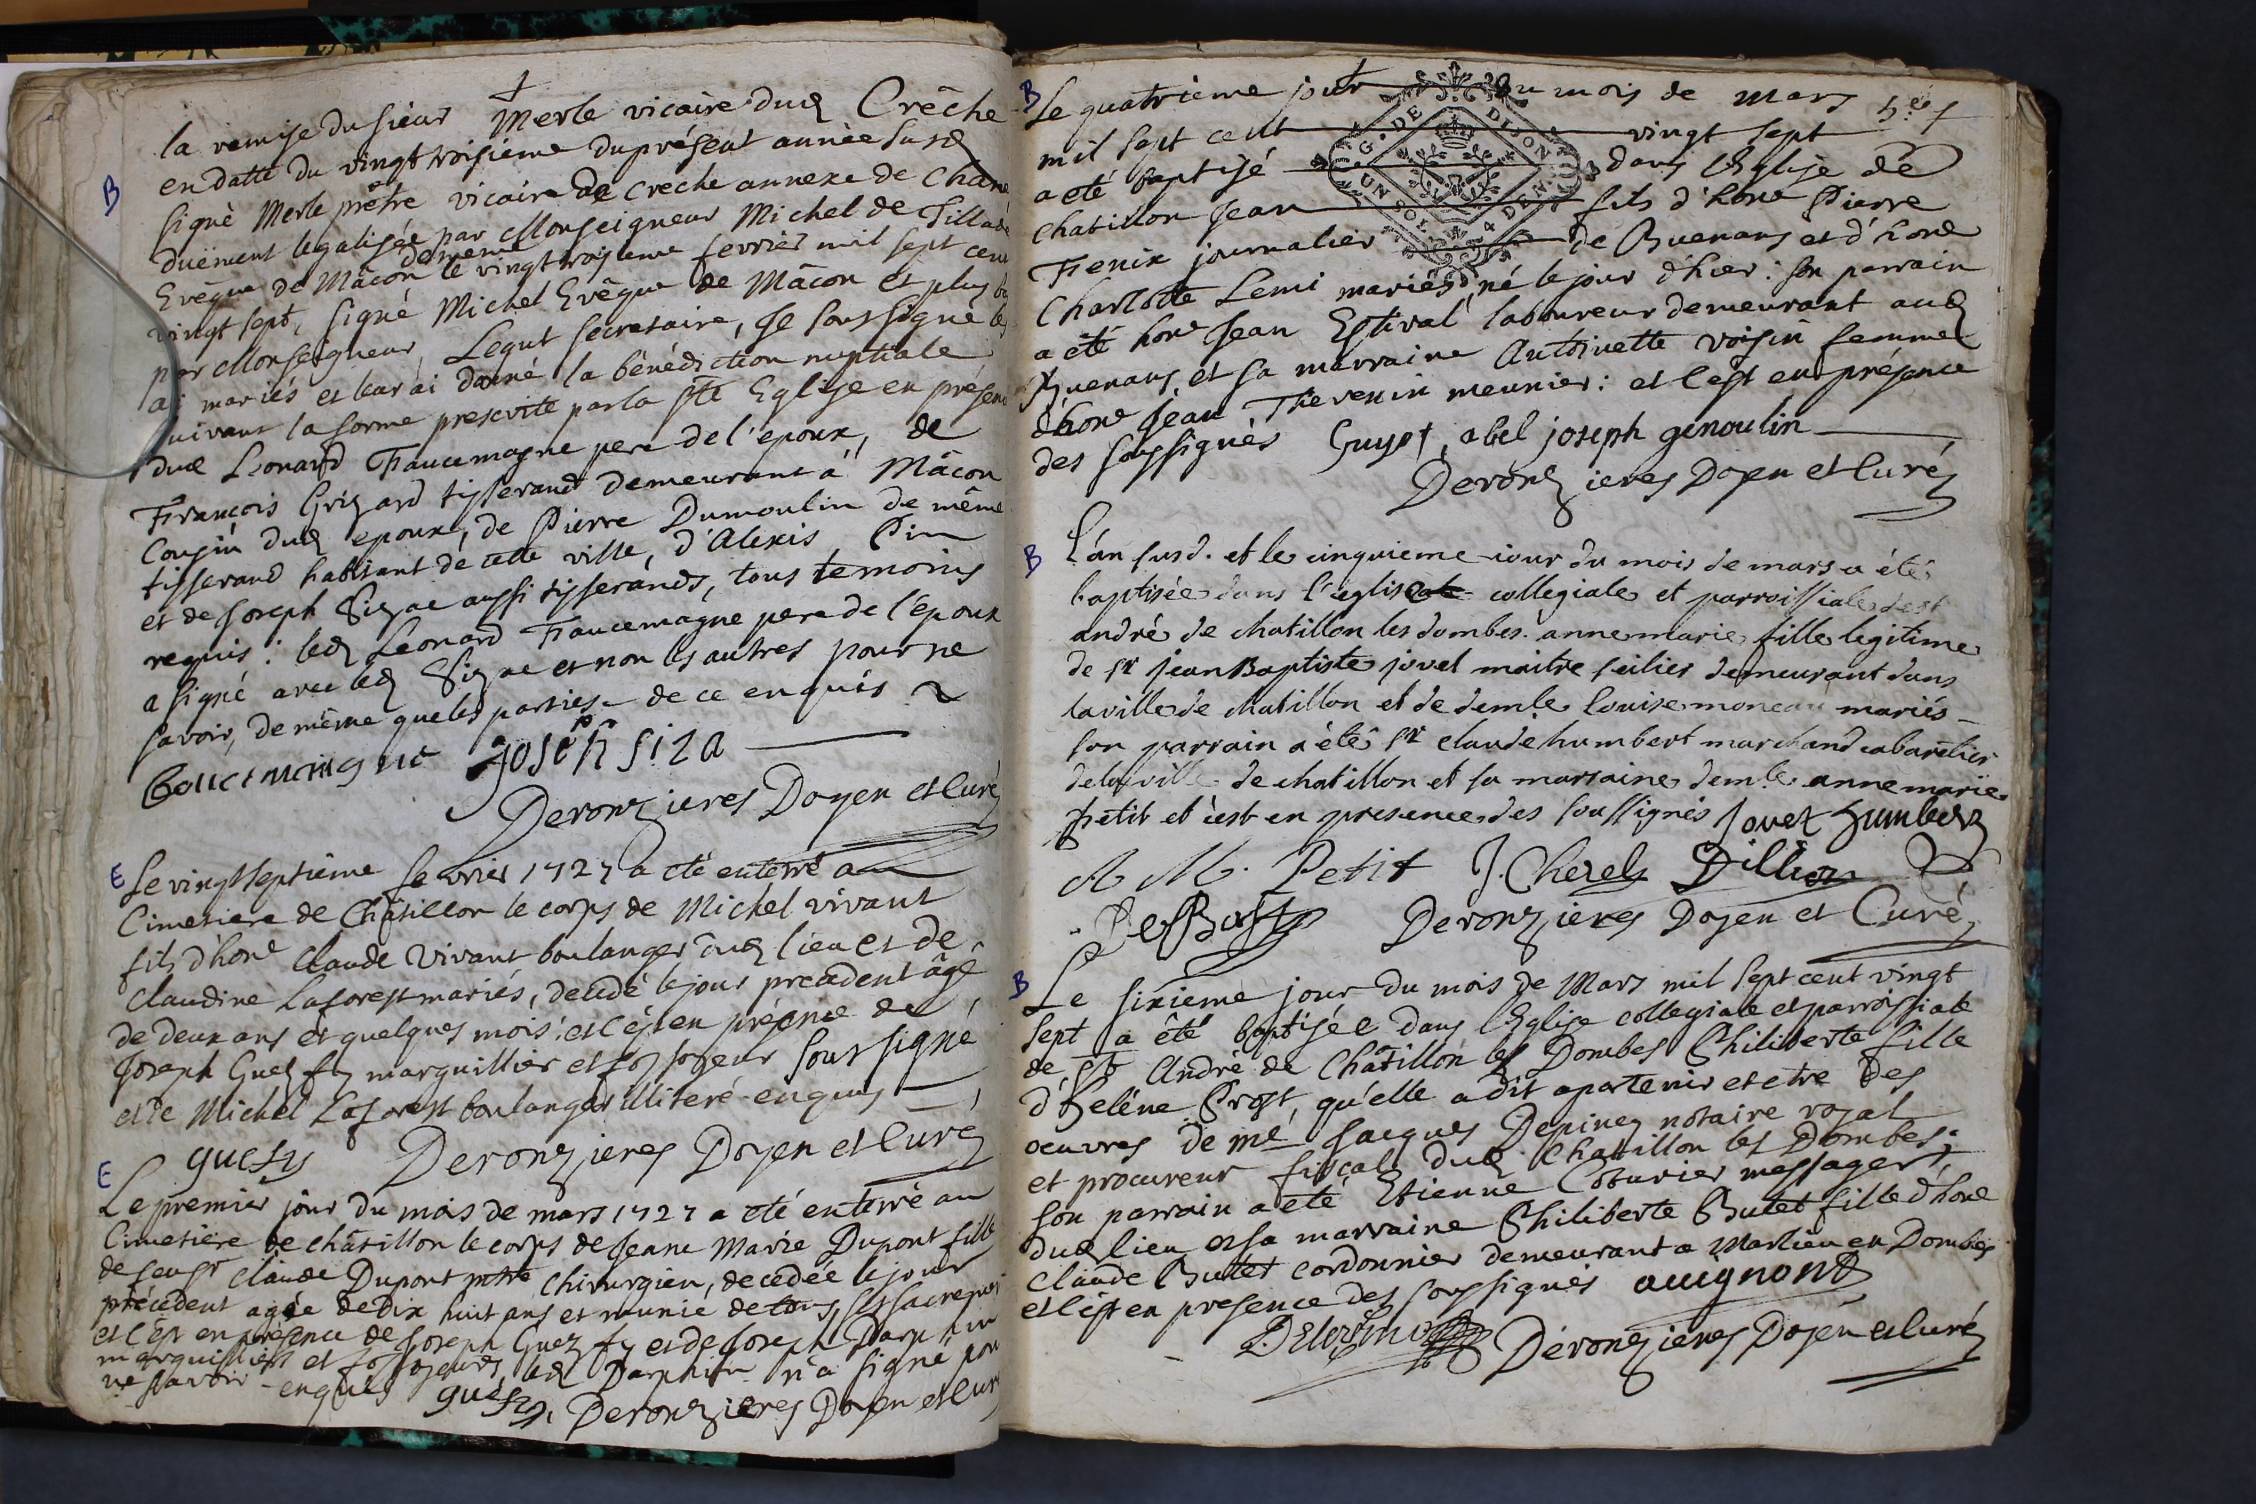 la remise du sieur Merle vicaire dud Crêche
en datte du vingt troisiéme du présent année susd
B
signé Merle prêtre vicaire de Creche annexe de Chane
duëment legalisée par Monseigneur Michel de Tillade
demême
Evêque de Mâcon le vingt troisieme fevrier mil sept cent
vingt sept, signé Michel Evêque de Mâcon et plus bas
par Monseigneur, Legut secretaire, Je soussigné les
ai mariés et leur ai donné la bénédiction nuptiale
suivant la forme prescrite par la ste Eglise en présence
dud Leonard Faucemagne pere de l'epoux, de
François Grizard tisserand demeurant à Mâcon
Cousin dud epoux, de Pierre Dumoulin de même
tisserand habitant de cette ville, d'Alexis Pin
et de Joseph Sizae aussi tisserands, tous temoins
requis: led Leonard Faucemagne pere de l'epoux
a signé avec led Sizae et non les autres pour ne
savoir, de même que les parties de ce enquis
Joseph siza
Deronzieres Doyen et Curé
E Le vingt septiême fevrier 1727 a été enterré au
Cimetiere de Châtillon le corps de Michel vivant
fils d'hone Claude Vivant boulanger dud lieu et de
Claudine Laforest mariés, decedé le jour precedent âgé
de deux ans et quelques mois: et c'est en présence de
Joseph Guezfy marguillier et fossoyeur soussigné
et de Michel Laforest boulanger illiteré enquis
guesfy Deronzieres Doyen et Curé
E
Le premier jour du mois de mars 1727 a été enterré au
Cimetiere de châtillon le corps de Jeane Marie Dupont fille
de feu sr Claude Dupont mtre chirurgien, decedée le jour
précedent agée de dix huit ans et munie de tous ses sacremens
et c'est en présence de Joseph Guezfy et de Joseph Darphin
marguilliers et fossoyeurs, led Darphin n'a signé pour
ne savoir enquis guesfy, Deronzieres Doyen et Curé
B Le quatrieme jour du mois de mars
mil sept cent vingt sept
a été baptisé dans l'Eglise de
Chatillon Jean fils d'hone Pierre
G. DE DIJON
UN SOL 4 DEN
Fenix journalier de Buenans et d'hone
Charlotte Lemi mariés, né le jour d'hier: son parrain
a été hone Jean Estival laboureur demeurant aud
Buenans, et sa marraine Antoinette Voisin femme
d'hone Jean Thevenin meunier: et c'est en présence
des soussignés Guyot, abel joseph genoulin
Deronzieres Doyen et Curé
B L'an susd. et le cinquieme jour du mois de mars a été
baptisée dans l'eglise collegiale et parroissiale de st
andré de chatillon les dombes. anne marie fille legitime
de sr jean Baptiste jovet maitre seilier demeurant dans
la ville de chatillon et de demle Louise moneau mariés
son parrain a été sr claude humbert marchand cabaretier
de la ville de chatillon et sa marraine demle anne marie
petit et c'est en presence des soussignés Jovet humbert
A M. Petit J. Cherel Dillion
DesBost Deronzieres Doyen et Curé
B Le sixieme jour du mois de Mars mil sept cent vingt
sept a êté baptisée dans l'Eglise collegiale et parroissiale
de st André de Châtillon les Dombes Philiberte fille
d'Heléne Prost, qu'elle a dit apartenir et etre des
oeuvres de me Jacques Depiney notaire royal
et procureur fiscal dud Chatillon les Dombes:
son parrain a été Etienne Couturier messager
dud lieu et sa marraine Philiberte Butet fille d'hone
Claude Butet cordonnier demeurant a Marlieu en Dombes
et c'est en presence des soussignés auignon
Deronzieres Doyen et Curé